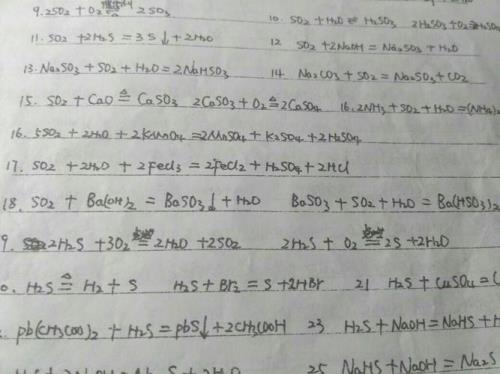 9. 2SO2 + O2 ⇌ 2SO3
10. SO2 + H2O ⇌ H2SO3 2H2SO3 + O2 =
11. SO2 + 2H2S = 3S↓ + 2H2O 12 SO2 + 2NaOH = Na2SO3 + H2O
13. Na2SO3 + SO2 + H2O = 2NaHSO3 14. Na2CO3 + SO2 = Na2SO3 + CO2
15. SO2 + CaO ≜ CaSO3 2CaSO3 + O2 ≜ 2CaSO4 16. 2NH3 + SO2 + H2O = (NH4)2
16. 5SO2 + 2H2O + 2KMnO4 = 2MnSO4 + K2SO4 + 2H2SO4
17. SO2 + 2H2O + 2FeCl3 = 2FeCl2 + H2SO4 + 2HCl
18. SO2 + Ba(OH)2 = BaSO3↓ + H2O BaSO3 + SO2 + H2O = Ba(HSO3)2
9. 2H2S + 3O2 点燃= 2H2O + 2SO2 2H2S + O2 点燃= 2S + 2H2O
0. H2S ≜ H2 + S H2S + Br2 = S + 2HBr 21 H2S + CuSO4 = C
pb(CH3COO)2 + H2S = pbS↓ + 2CH3COOH 23 H2S + NaOH = NaHS + H
S + 2H2O 25 NaHS + NaOH = Na2S